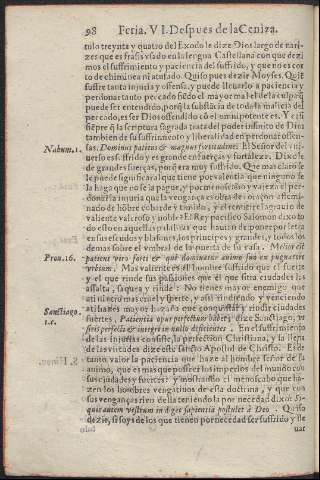 98 Feria. VI. Despues de la Ceniza.
tulo treynta y quatro del Exodo le dize Dios largo de nari-
zes que es frasis vsado en la lengua Castellana con que dezi
mos el suffrimiento y paciencia del suffrido, y que no es cor
to de chiminea ni atufado. Quiso pues dezir Moyses. Quiẽ
suffre tanta injuria y offensa, y puede lleuarlo a paciencia y
perdonar tanto peccado
pecado, es ser Dios offendido cõ el omnipotente es. Y casi
siẽpre q̃ la scriptura sagrada trata del poder infinito de Dios
tambien de su suffrimiento y liberalidad en perdonar offen-
Nahum. 1.
sas. Dominus patiens & magnus fortitudine. El Señor del vni-
uerso es suffrido y es grande en fuerças y fortaleza. Dize le
de grandes fuerças, porq̃ era muy suffrido. Que mas claro se
le puede significar al que tiene por valentia que ninguno
la haga que no se la pague, y por
donar la injuria que la vengança es obra de
minado de hõbre cobarde y timido, y el remitir el agrauio de
valiente valeroso y noble? El Rey pacifico Salomon dixo to
do esto en aquellas palabras que hauian de poner por letra
en sus escudos y blasones, los principes y grandes, y todos los
demas sobre el vmbral de la puerta de su casa. Melior est
Prou. 16.
patiens viro forti & qui dominatur animo suo expugnatore
vrbium. Mas valiente es el hombre suffrido que el fuerte
y el que rinde sus passiones que el que sitia ciudades las
assalta, saquea y rinde: No tienes mayor enemigo que
a ti ni otro mas cruel y fuerte, y assi rindiendo y venciendo
a ti hazes mayor hazaña que conquistar y rendir ciudades
Sanctiago. 1.
fuertes, Patientia opus perfectum habet, dize Sanctiago, vt
sitis perfecti & integri in nullo deficientes. En el suffrimiento
de las injurias consiste la perfection Christiana, y la llepa
de las virtudes dize este sancto Apostol de Christo. Es de
tanto valor la paciencia que haze al hombre señor de su
animo, que es mas que posseer los imperios del mundo con
sus ciudades y fuerças: y mostrando el menoscabo que ha-
zen los hombres vengatiuos de esta doctrina, y que con
sus venganças rien della teniendola por necedad dixo: Si
quis autem vestrum indiget sapientia postulet à Deo. Quiso
dezir, si soys de los que tienen por necedad ser suffrido y lle
uar